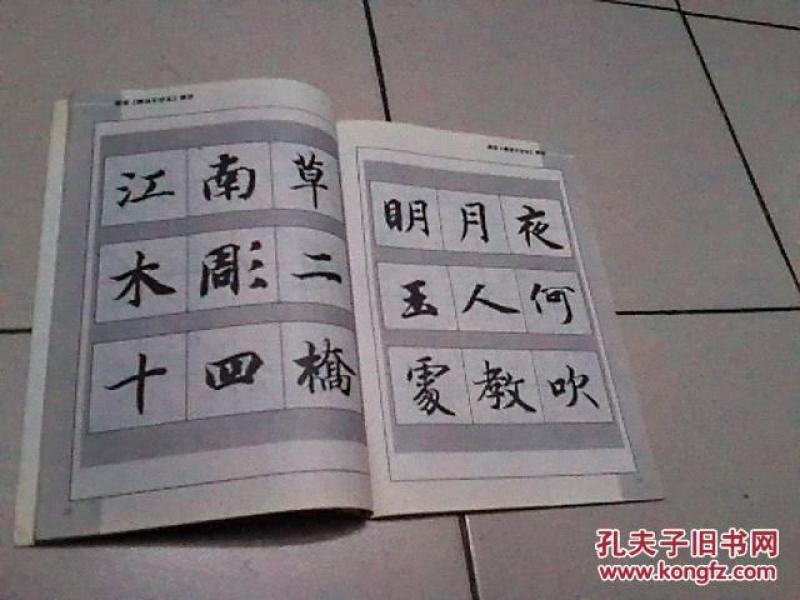 江南草
木彫二
十四橋
明月夜
玉人何
處教吹
孔夫子旧书网
www.kongfz.com